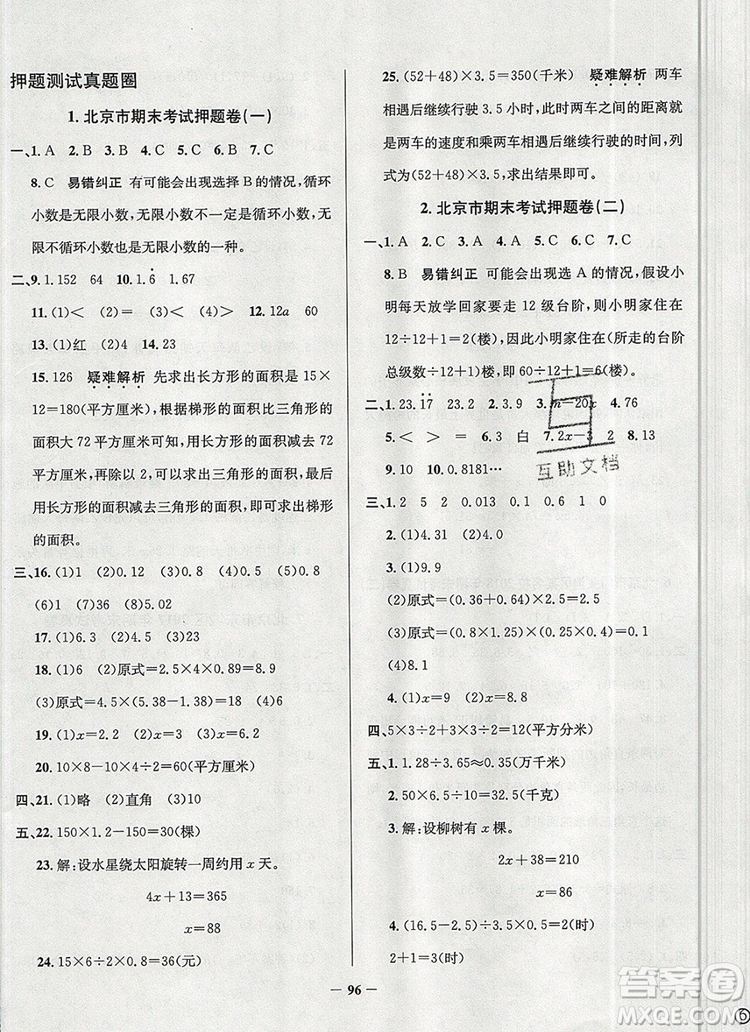 押题测试真题圈
1. 北京市期末考试押题卷(一)
一、1. A  2. B  3. C  4. B  5. C  6. B  7. C
8. C  易错纠正  有可能会出现选择 B 的情况,循环
小数是无限小数,无限小数不一定是循环小数,无
限不循环小数也是无限小数的一种。
二、9. 1.152  64  10. 1.6̇  1.67
11. (1)<  (2)=  (3)<  (4)>  12. 12a  60
13. (1)红  (2)4  14. 23
15. 126  疑难解析  先求出长方形的面积是 15×
12=180(平方厘米),根据梯形的面积比三角形的
面积大 72 平方厘米可知,用长方形的面积减去 72
平方厘米,再除以 2,可以求出三角形的面积,最后
用长方形的面积减去三角形的面积,即可求出梯形
的面积。
三、16. (1)1  (2)0.12  (3)8  (4)0.8  (5)0
(6)1  (7)3.6  (8)5.02
17. (1)9.6  (2)4.5  (3)23
18. (1)6  (2)原式=2.5×4×0.89=8.9
(3)原式=4.5×(5.38-1.38)=18  (4)6
19. (1)x=9  (2)x=3  (3)x=6.2
20. 10×8-10×4÷2=60(平方厘米)
四、21. (1)略  (2)直角
五、22. 150×1.2-150=30(棵)
23. 解:设水星绕太阳旋转一周约用 x 天。
4x+13=365
x=88
24. 15×6÷2×0.8=36(元)
25. (52+48)×3.5=350(千米)  疑难解析  两车
相遇后继续行驶 3.5 小时,此时两车之间的距离就
是两车的速度和乘两车相遇后继续行驶的时间,列
式为(52+48)×3.5,求出结果即可。
2. 北京市期末考试押题卷(二)
一、1. A  2. C  3. A  4. A  5. C  6. B  7. B
8. B  易错纠正  可能会出现选 A 的情况,假设小
明每天放学回家要走 12 级台阶,那么小明家住在
12÷12+1=2(楼),因此小明家住在(所走的台阶
总级数÷12+1)楼,即 60÷12+1=6(楼)。
二、1. 23.1̇7̇  23.2  2. 3.9  3. m-20x  4. 76
5. <  >  =  6. 3  白  7. 2x-3  2  8. 13
9. 10  10. 0.8181…
三、1. 2  5  2  0.013  0.1  0  6  0.5
2. (1)4.31  (2)4.0
3. (1)9.9
(2)原式=(0.36+0.64)×3.5=3.5
(3)原式=(0.16+0.84)×2.3=2.3
(4)8.1
4. (1)x=9  (2)x=8.8
四、5×3÷2+3×3÷2=12(平方分米)
五、1. 1.28÷3.65≈0.35(万千米)
2. 50×10×6.5÷10=325(千克)
3. 解:设柳树有 x 棵。
2x+38=210
x=86
4. (16.5-2.5)÷(3.5+3.5)=2(时)
2+1=3(时)
互助文档
— 96 —
答案圈
MXQE.COM
6